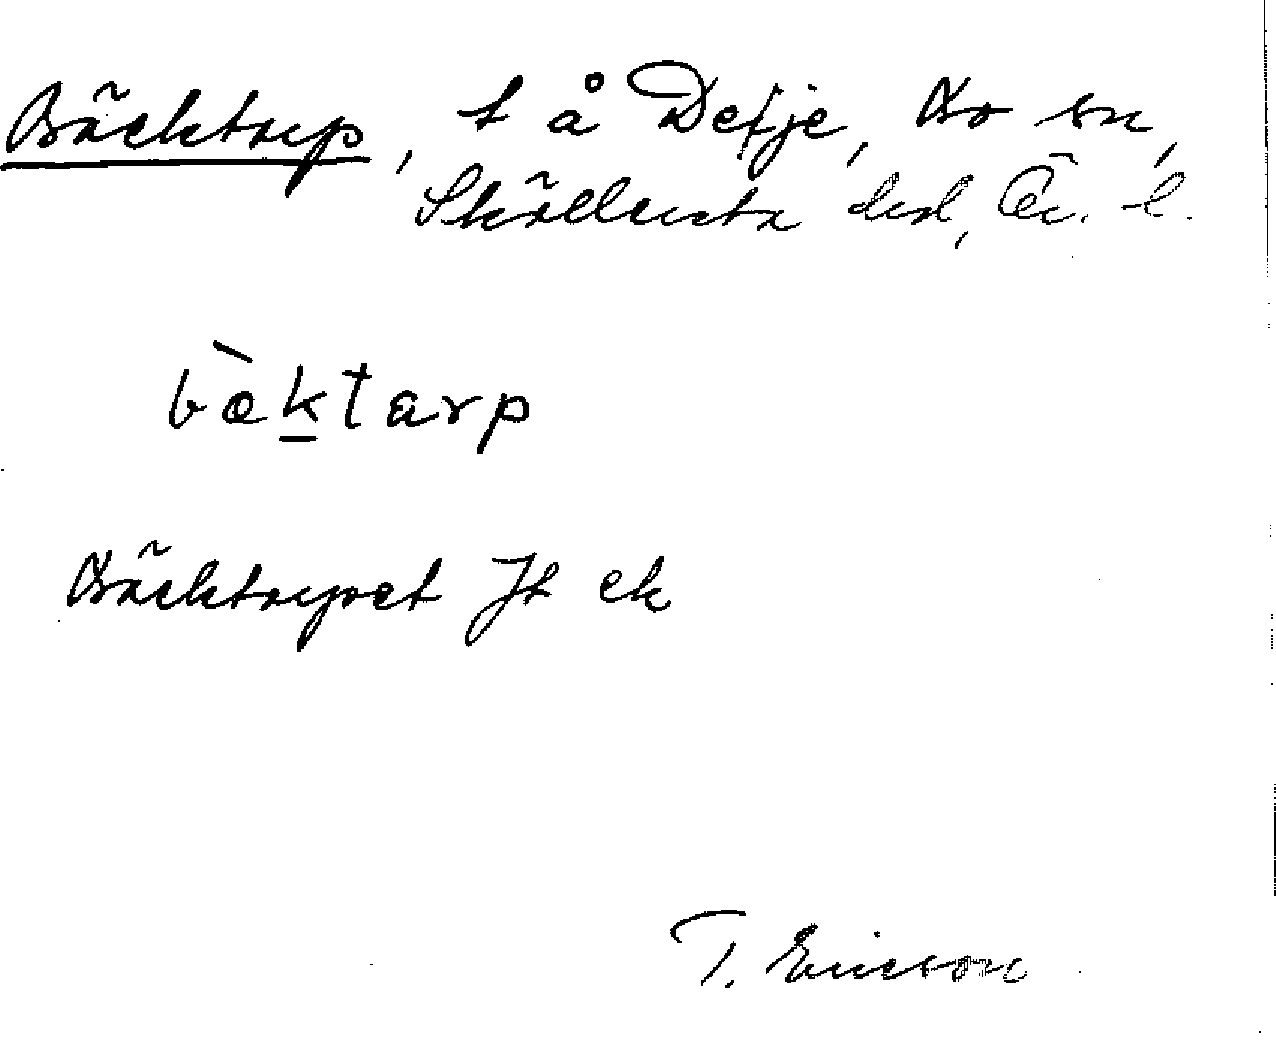 Bäcktorp, t å Detje, Bo sn,
Skyllersta hd, Ör. l.
bàktarp
Bäcktorpet Jt ek
T. Ericson